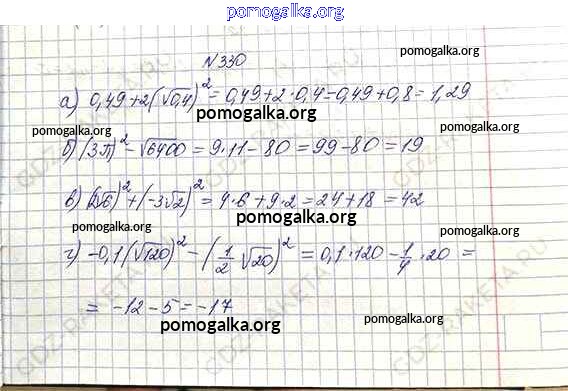 pomogalka.org
N 330
pomogalka.org
а) 0,49+2(√0,4)² = 0,49+2·0,4=0,49+0,8=1,29
pomogalka.org
pomogalka.org
pomogalka.org
б) (3√11)² - √6400 = 9·11-80 = 99-80=19
pomogalka.org
pomogalka.org
в) (2√6)² + (-3√2)² = 4·6+9·2=24+18=42
pomogalka.org
pomogalka.org
pomogalka.org
г) -0,1(√120)² - (1/2 √20)² = 0,1·120 - 1/4·20 =
= -12-5=-17
pomogalka.org
pomogalka.org
pomogalka.org
GDZ-RAKETA.RU